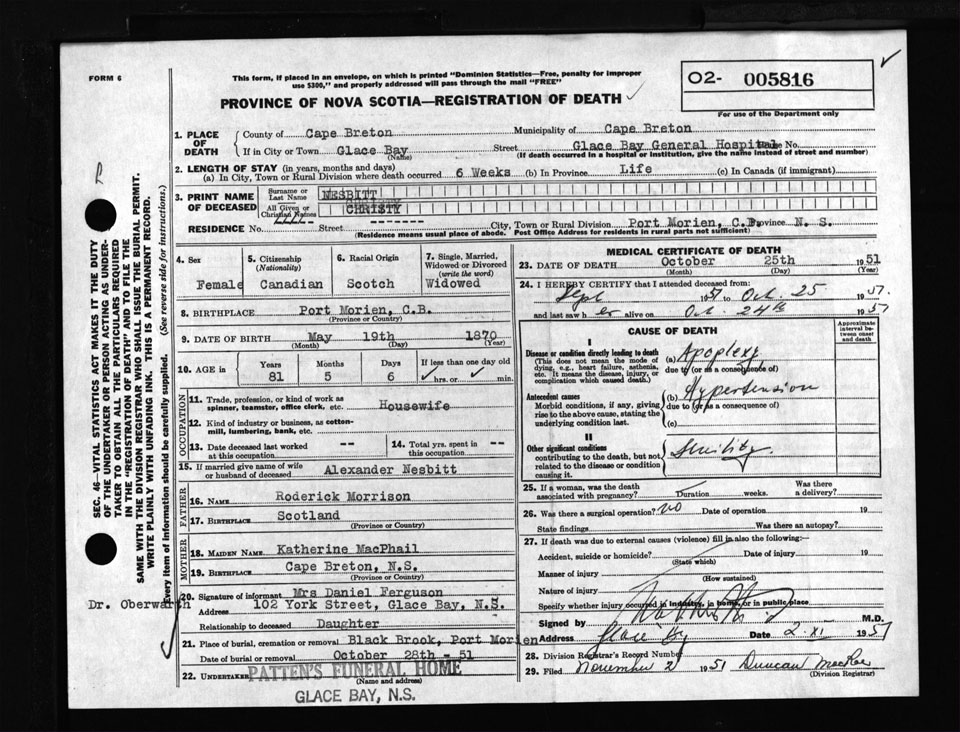 FORM 6
This form, if placed in an envelope, on which is printed "Dominion Statistics—Free, penalty for improper
use $300," and properly addressed will pass through the mail "FREE"
PROVINCE OF NOVA SCOTIA—REGISTRATION OF DEATH
O2- 005816
For use of the Department only
SEC. 46—VITAL STATISTICS ACT MAKES IT THE DUTY
OF THE UNDERTAKER OR PERSON ACTING AS UNDER-
TAKER TO OBTAIN ALL THE PARTICULARS REQUIRED
IN THE "REGISTRATION OF DEATH" AND TO FILE THE
SAME WITH THE DIVISION REGISTRAR WHO SHALL ISSUE THE BURIAL PERMIT.
WRITE PLAINLY WITH UNFADING INK. THIS IS A PERMANENT RECORD.
Every item of information should be carefully supplied. (See reverse side for instructions.)
1. PLACE OF DEATH County of Cape Breton Municipality of Cape Breton
If in City or Town Glace Bay Street Glace Bay General Hospital No.
(Name) (If death occurred in a hospital or institution, give the name instead of street and number)
2. LENGTH OF STAY (in years, months and days)
(a) In City, Town or Rural Division where death occurred 6 Weeks (b) In Province Life (c) In Canada (if immigrant)
3. PRINT NAME OF DECEASED Surname or Last Name NESBITT
All Given or Christian Names CHRISTY
RESIDENCE No. --- Street ------- City, Town or Rural Division Port Morien, C.B. Province N. S.
(Residence means usual place of abode. Post Office Address for residents in rural parts not sufficient)
4. Sex Female
5. Citizenship (Nationality) Canadian
6. Racial Origin Scotch
7. Single, Married, Widowed or Divorced (write the word) Widowed
8. BIRTHPLACE Port Morien, C.B.
(Province or Country)
9. DATE OF BIRTH May 19th 1870
(Month) (Day) (Year)
10. AGE in Years 81 Months 5 Days 6 If less than one day old hrs. or min.
OCCUPATION
11. Trade, profession, or kind of work as spinner, teamster, office clerk, etc. Housewife
12. Kind of industry or business, as cotton-mill, lumbering, bank, etc.
13. Date deceased last worked at this occupation --
14. Total yrs. spent in this occupation --
15. If married give name of wife or husband of deceased Alexander Nesbitt
FATHER
16. NAME Roderick Morrison
17. BIRTHPLACE Scotland
(Province or Country)
MOTHER
18. MAIDEN NAME Katherine MacPhail
19. BIRTHPLACE Cape Breton, N.S.
(Province or Country)
20. Signature of informant Mrs Daniel Ferguson
Dr. Oberwarth
Address 102 York Street, Glace Bay, N.S.
Relationship to deceased Daughter
21. Place of burial, cremation or removal Black Brook, Port Morien
Date of burial or removal October 28th - 51
22. UNDERTAKER PATTEN'S FUNERAL HOME
(Name and address)
GLACE BAY, N.S.
MEDICAL CERTIFICATE OF DEATH
23. DATE OF DEATH October 25th 1951
(Month) (Day) (Year)
24. I HEREBY CERTIFY that I attended deceased from:
Sept 1951 to Oct. 25 1951.
and last saw her alive on Oct. 24th 1951
CAUSE OF DEATH
Approximate interval between onset and death
I
Disease or condition directly leading to death (a) Apoplexy
(This does not mean the mode of dying, e.g., heart failure, asthenia, etc. It means the disease, injury, or complication which caused death.)
due to (or as a consequence of)
Antecedent causes (b) Hypertension
Morbid conditions, if any, giving rise to the above cause, stating the underlying condition last.
due to (or as a consequence of)
(c)
II
Other significant conditions Senility.
contributing to the death, but not related to the disease or condition causing it.
25. If a woman, was the death associated with pregnancy? Duration weeks. Was there a delivery?
26. Was there a surgical operation? no Date of operation 19
State findings Was there an autopsy?
27. If death was due to external causes (violence) fill in also the following:—
Accident, suicide or homicide? Date of injury 19
(State which)
Manner of injury
(How sustained)
Nature of injury
Specify whether injury occurred in industry, in home, or in public place
Signed by M.D.
Address Glace Bay Date 2.XI 1951
28. Division Registrar's Record Number
29. Filed November 2 1951 Duncan MacRae
(Division Registrar)